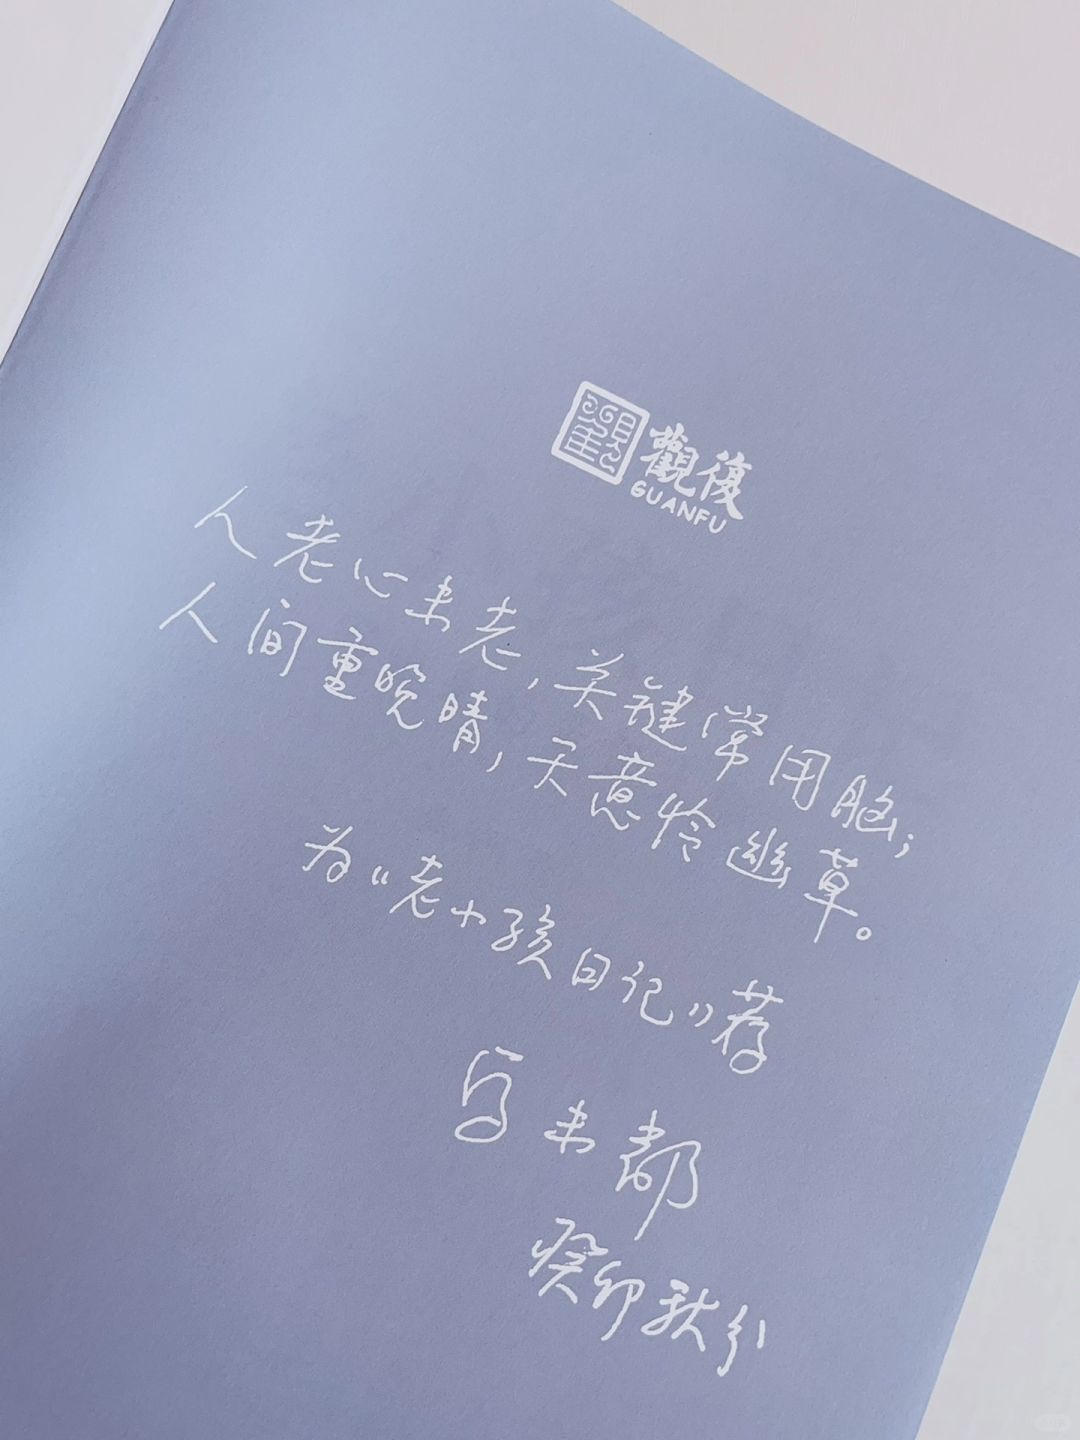 觀復
GUANFU
人老心未老，关键常用脑；
人间重晚晴，天意怜幽草。
为“老小孩日记”荐
马未都
癸卯秋分